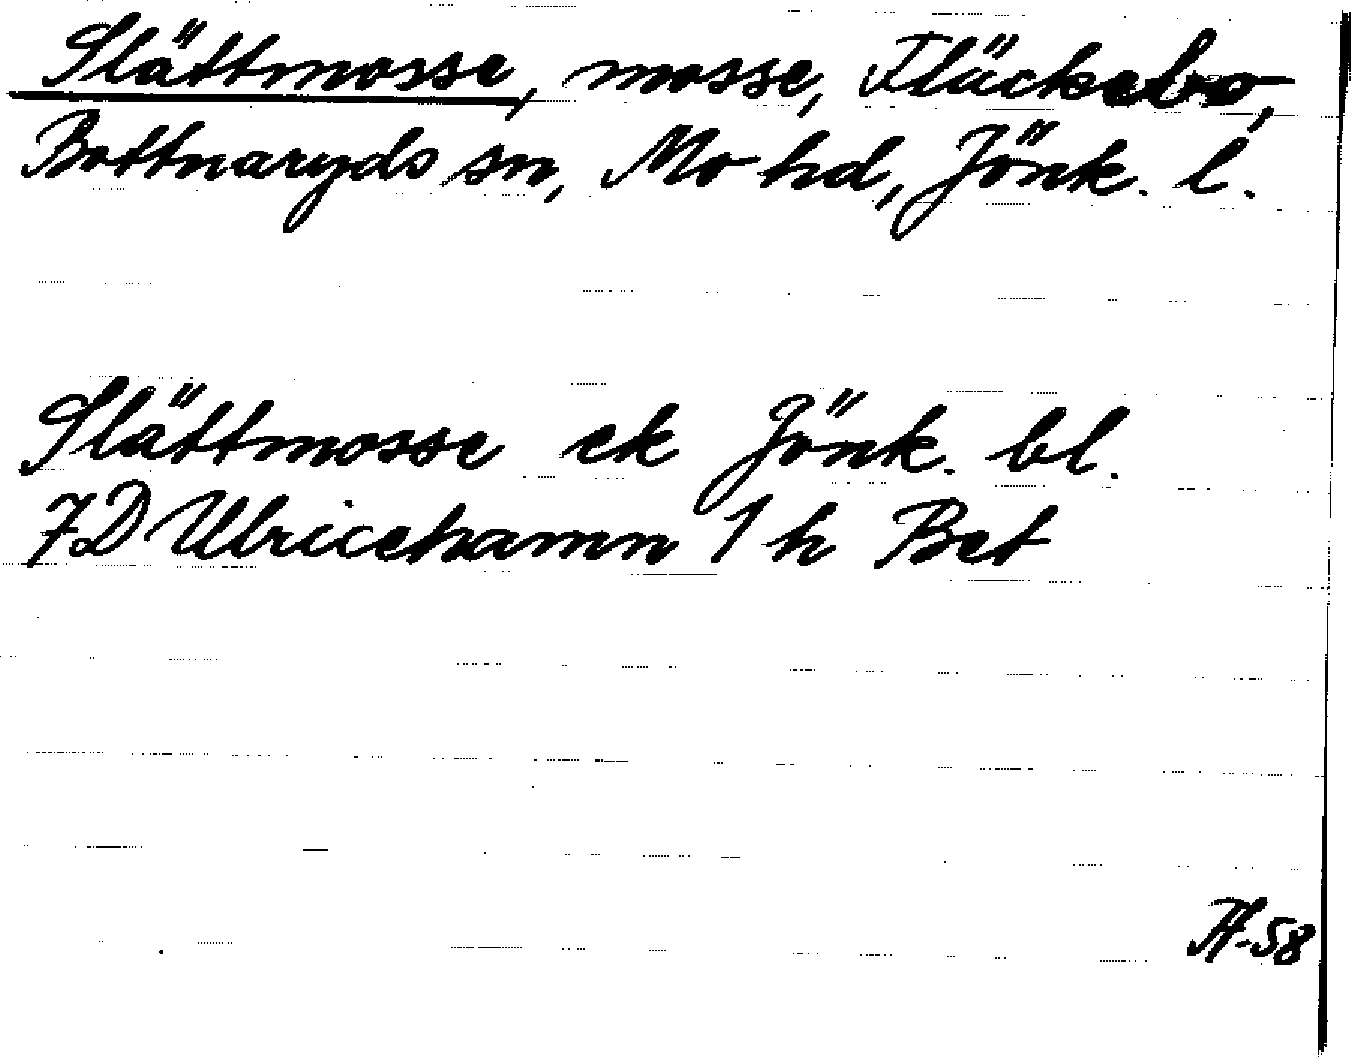 Slättmosse, mosse, Fläckebo,
Bottnaryds sn, Mo hd, Jönk. l.
Slättmosse ek Jönk. bl.
7D Ulricehamn 1 h Bet
-58